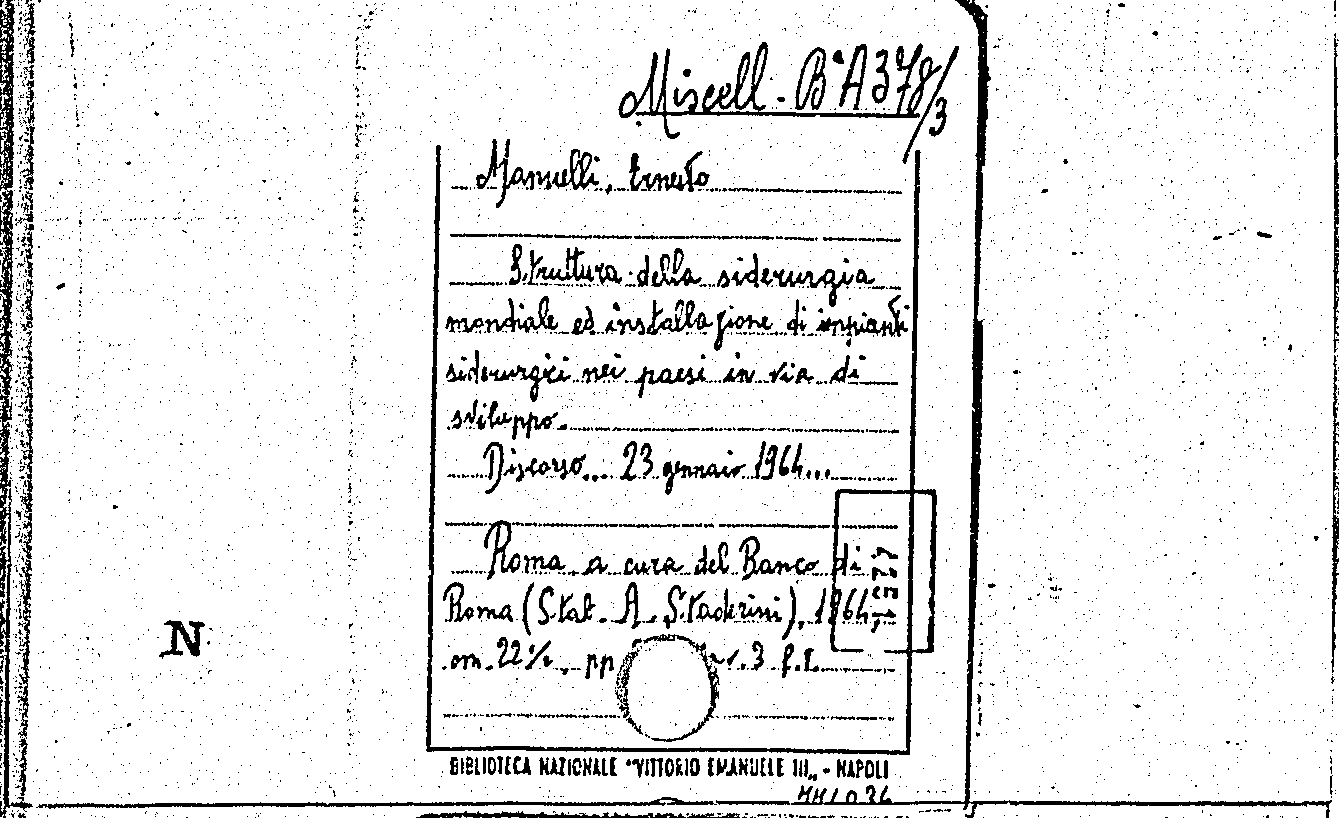 Miscell. Bª A378/3
Manuelli, Ernesto
Struttura della siderurgia
mondiale ed installazione di impianti
siderurgici nei paesi in via di
sviluppo.
Discorso... 23 gennaio 1964...
Roma a cura del Banco di
Roma (Stab. A. Staderini), 1964
cm. 22½, pp 3 f.t.
N
BIBLIOTECA NAZIONALE "VITTORIO EMANUELE III„ - NAPOLI